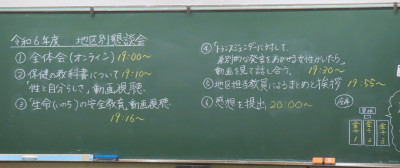 令和6年度 地区別懇談会
① 全体会(オンライン) 19:00〜
② 保健の教科書について 19:10〜
「性と自分らしさ」動画視聴。
③「生命(いのち)の安全教育」動画視聴
19:16〜
④「トランスジェンダーに対して、
差別的な発言をあびせる女性がいたら」
動画を見て話し合う。 19:30〜
⑤ 地区担当教員によるまとめと挨拶 19:55〜
⑥ 感想を提出 20:00〜